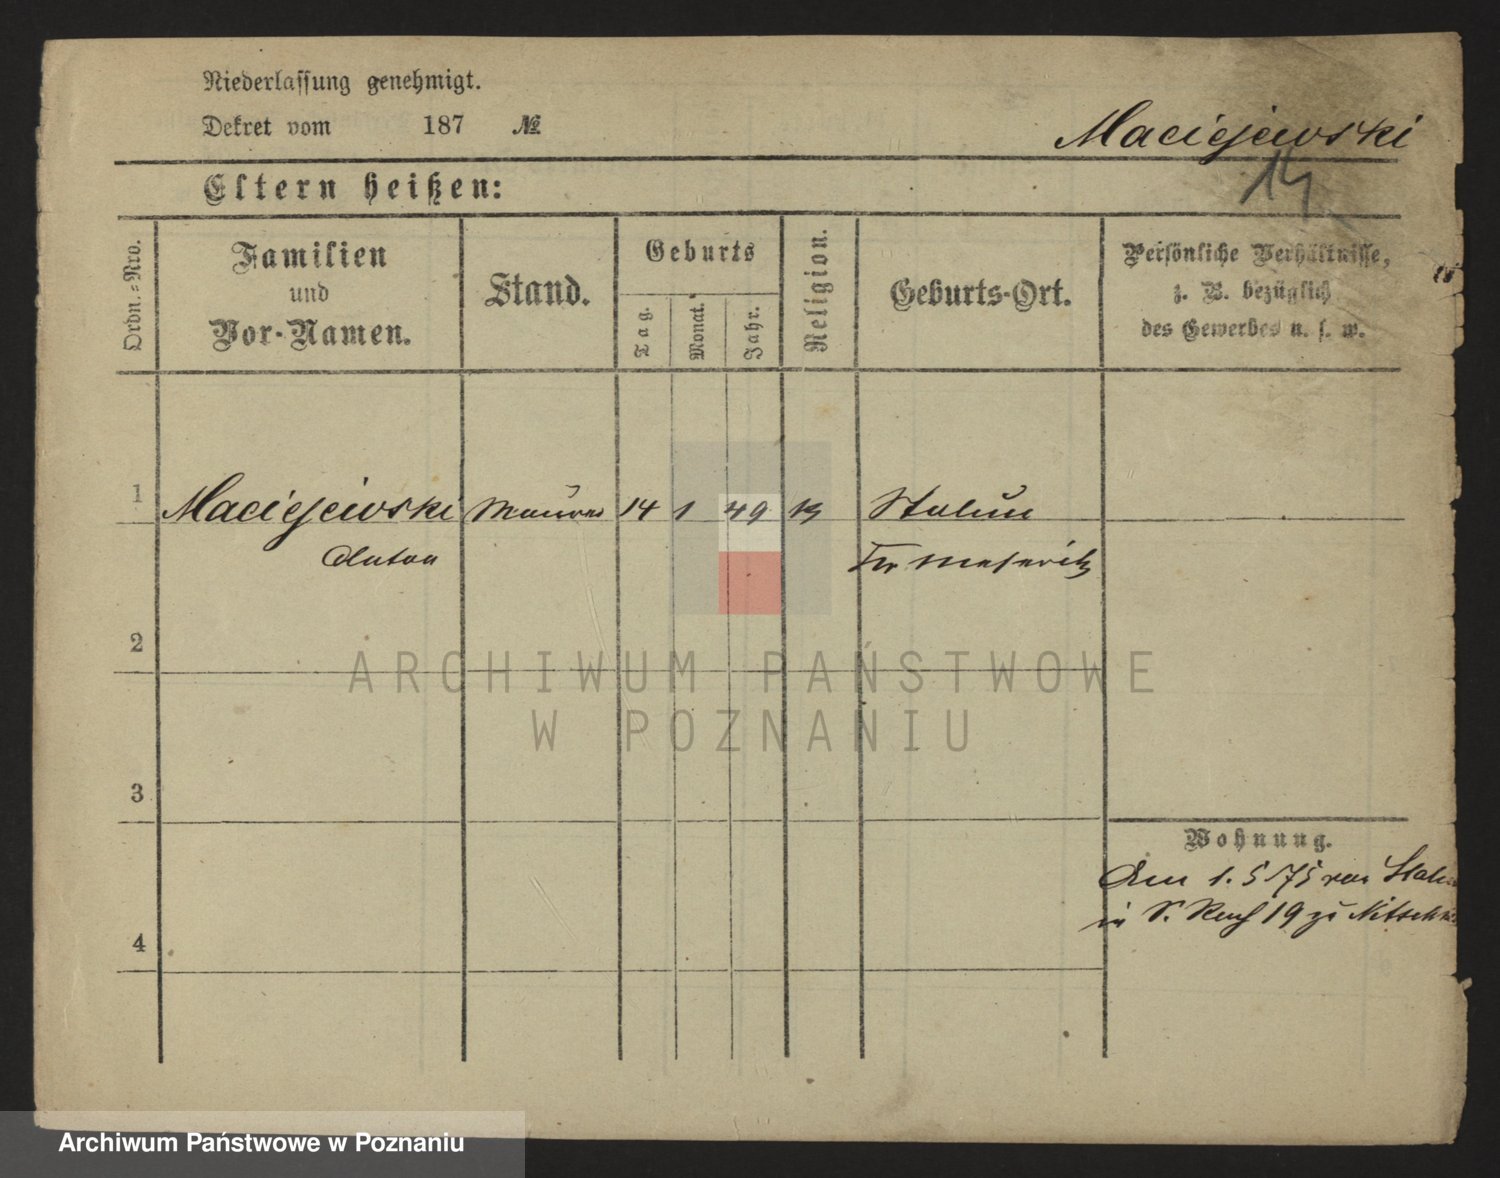 Niederlassung genehmigt.
Dekret vom 187 №
Maciejewski
14
Eltern heißen:
Ordn.=Nro.
Familien
und
Vor-Namen.
Stand.
Geburts
Tag.
Monat.
Jahr.
Religion.
Geburts-Ort.
Persönliche Verhältnisse,
z. B. bezüglich
des Gewerbes u. s. w.
1 Maciejewski Maurer 14 1 49 Stalun
Anton Kr Meseritz
2
3
4
Wohnung.
Am 1. 5 75 von
in 19 zu
ARCHIWUM PAŃSTWOWE
W POZNANIU
Archiwum Państwowe w Poznaniu